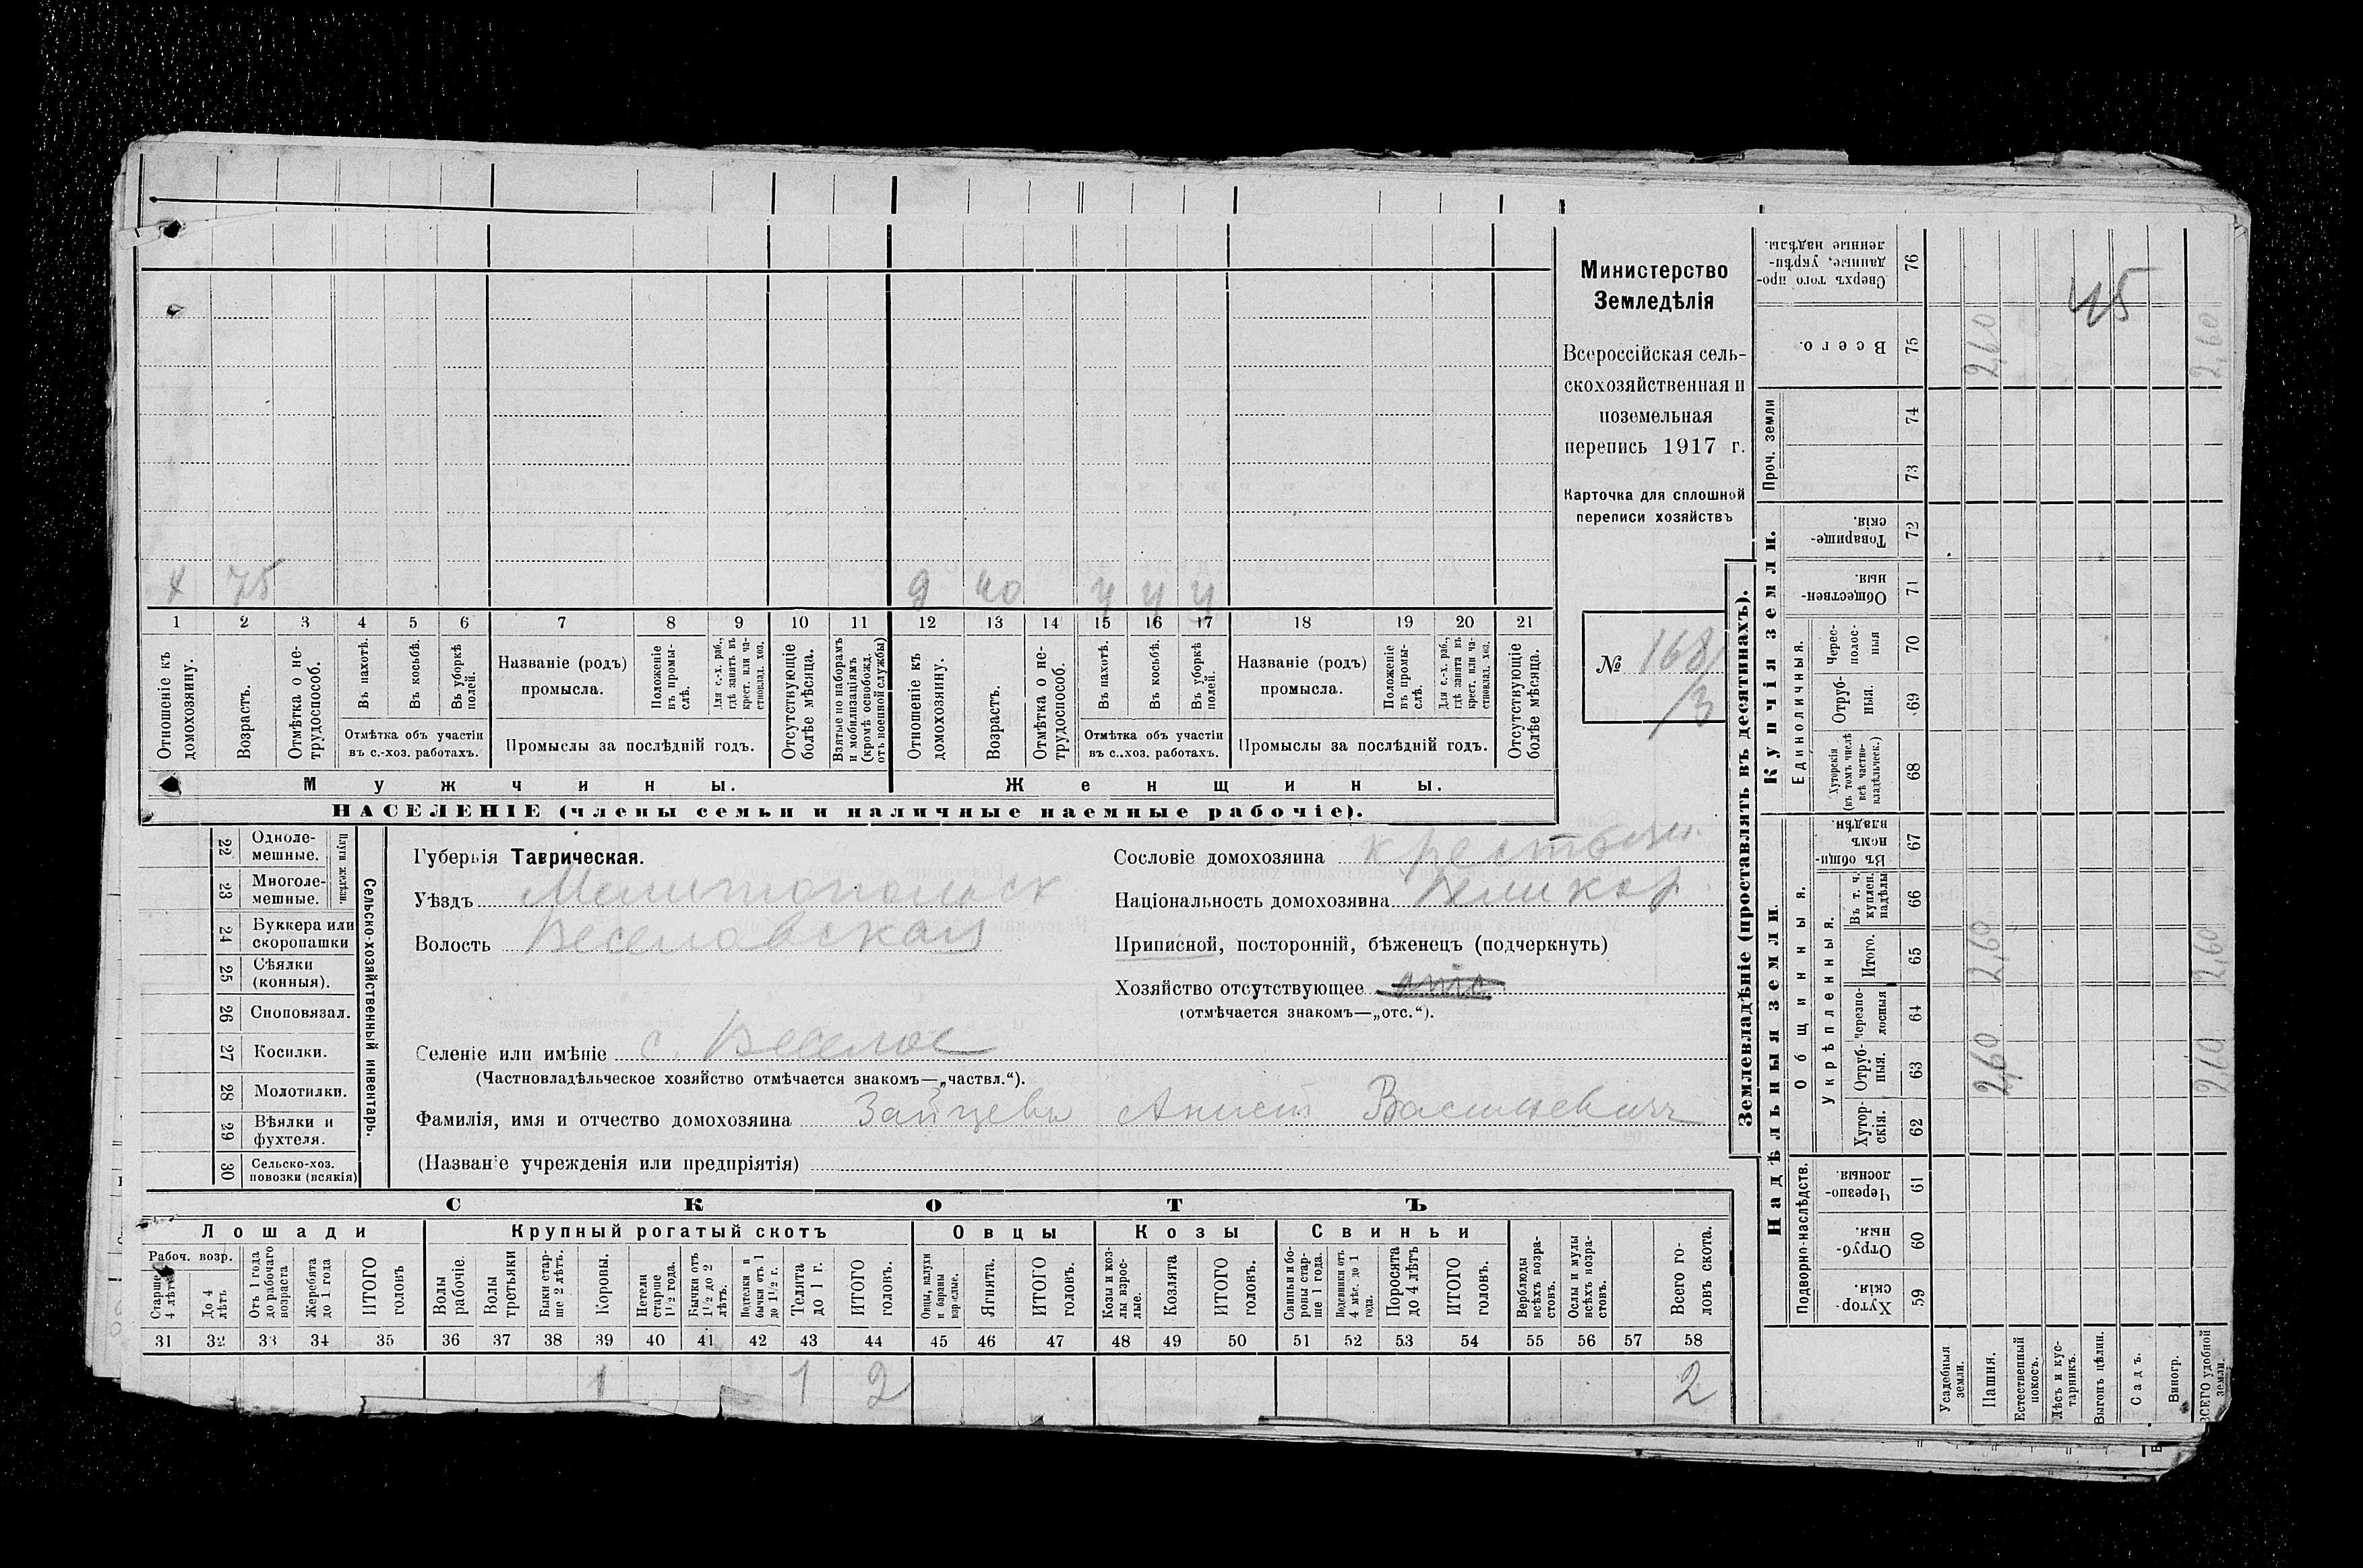 Министерство
Земледѣлія
Всероссійская сель-
скохозяйственная и
поземельная
перепись 1917 г.
Карточка для сплошной
переписи хозяйствъ
№ 168
/3
х 75
д 40 у у у
1 2 3 4 5 6 7 8 9 10 11 12 13 14 15 16 17 18 19 20 21
Отношеніе къ домохозяину.
Возрастъ.
Отмѣтка о не-трудоспособ.
Въ пахотѣ.
Въ косьбѣ.
Въ уборкѣ полей.
Отмѣтка объ участіи
въ с.-хоз. работахъ.
Названіе (родъ)
промысла.
Положеніе въ промы-слѣ.
Для с.-х. раб., гдѣ занятъ въ крест. или ча-стновлад. хоз.
Промыслы за послѣдній годъ.
Отсутствующіе болѣе мѣсяца.
Взятые по наборамъ и мобилизаціямъ (кромѣ освобожд. отъ военной службы)
Отношеніе къ домохозяину.
Возрастъ.
Отмѣтка о не-трудоспособ.
Въ пахотѣ.
Въ косьбѣ.
Въ уборкѣ полей.
Отмѣтка объ участіи
въ с.-хоз. работахъ.
Названіе (родъ)
промысла.
Положеніе въ промы-слѣ.
Для с.-х. раб., гдѣ занята въ крест. или ча-стновлад. хоз.
Промыслы за послѣдній годъ.
Отсутствующіе болѣе мѣсяца.
Мужчины.
Женщины.
НАСЕЛЕНІЕ (члены семьи и наличные наемные рабочіе).
22 Одноле-мешные.
23 Многоле-мешные.
Плуги желѣзн.
24 Буккера или скоропашки
25 Сѣялки (конныя).
26 Сноповязал.
27 Косилки.
28 Молотилки.
29 Вѣялки и фухтеля.
30 Сельско-хоз. повозки (всякія)
Сельско-хозяйственный инвентарь.
Губернія Таврическая.
Уѣздъ Мелитопольск
Волость Веселовская
Селеніе или имѣніе с. Веселое
(Частновладѣльческое хозяйство отмѣчается знакомъ—„частвл.“).
Фамилія, имя и отчество домохозяина Зайцевъ Анисий Васильевичъ
(Названіе учрежденія или предпріятія)
Сословіе домохозяина крестьян.
Національность домохозяина великор.
Приписной, посторонній, бѣженецъ (подчеркнуть)
Хозяйство отсутствующее отс
(отмѣчается знакомъ—„отс.“).
СКОТЪ
Лошади
Крупный рогатый скотъ
Овцы
Козы
Свиньи
Рабоч. возр.
Старше 4 лѣтъ
До 4 лѣтъ
Отъ 1 года до рабочаго возраста
Жеребята до 1 года
ИТОГО головъ
Волы рабочіе.
Волы третьяки
Быки стар-ше 2 лѣтъ.
Коровы.
Нетели старше 1½ года.
Бычки отъ 1½ до 2 лѣтъ.
Подтелки и бычки отъ 1 до 1½ г.
Телята до 1 г.
ИТОГО головъ.
Овцы, валухи и бараны взрослые.
Ягнята.
ИТОГО головъ.
Козы и коз-лы взрос-лые.
Козлята
ИТОГО головъ.
Свиньи и бо-ровы стар-ше 1 года.
Подсвинки отъ 4 мѣс. до 1 года.
Поросята до 4 лѣтъ
ИТОГО головъ.
Верблюды всѣхъ возра-стовъ.
Ослы и мулы всѣхъ возра-стовъ.
Всего го-ловъ скота.
31 32 33 34 35 36 37 38 39 40 41 42 43 44 45 46 47 48 49 50 51 52 53 54 55 56 57 58
1 1 2 2
Землевладѣніе (проставлять въ десятинахъ).
Купчія земли.
Надѣльныя земли
Проч. земли
Единоличныя.
Общинныя.
Укрѣпленныя.
Подворно-наслѣдств.
Сверхъ того про-данные, укрѣп-ленные надѣлы. 76
Всего. 75 2,60 2,60
45
74
73
Товарище-скія. 72
Обществен-ныя. 71
Черес-полос-ныя 70
Отруб-ныя. 69
Хуторскія (въ томъ числѣ всѣ частно-владѣльческ.) 68
Въ общин-номъ владѣн. 67
Въ т. ч. куплен. надѣлы 66
Итого. 65 2,60 2,60
Черезпо-лосныя 64
Отруб-ныя. 63 2,60 2,60
Хутор-скія. 62
Черезпо-лосныя 61
Отруб-ныя. 60
Хутор-скія. 59
Усадебныя земли.
Пашня.
Естественный покосъ.
Лѣсъ и кус-тарникъ.
Выгонъ цѣлин.
Садъ.
Виногр.
ВСЕГО удобной земли.